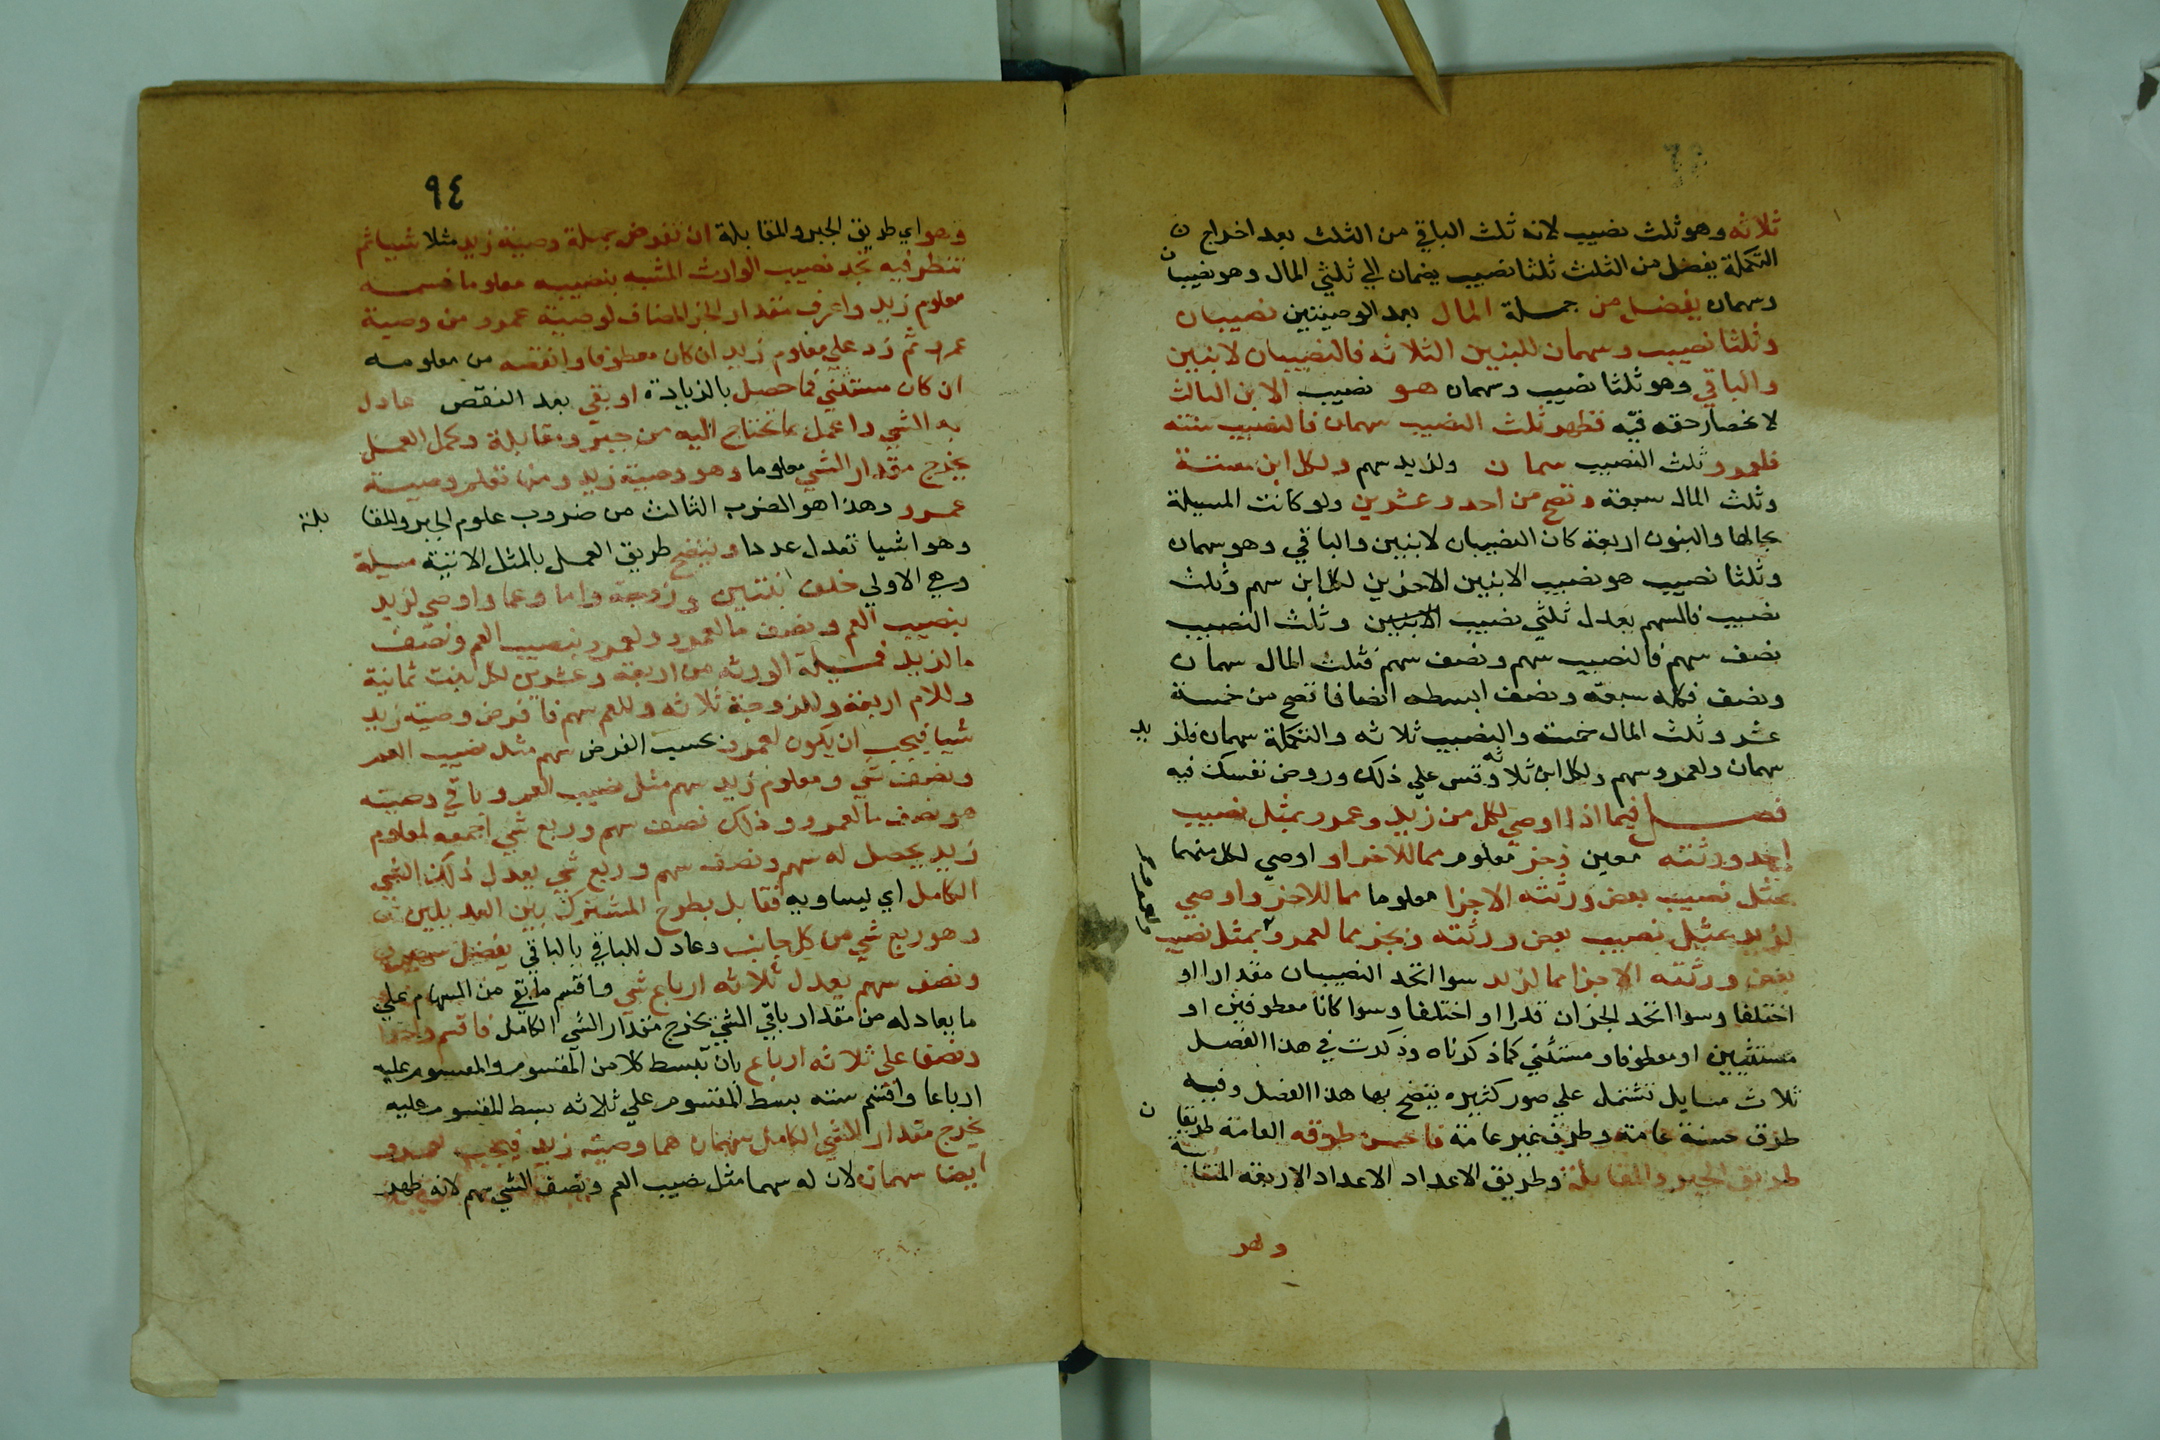 ثلاثه وهو ثلث نصيب لانه ثلث الباقي من الثلث بعد اخراج
التكملة يفضل من الثلث ثلثا نصيب يضمان الي ثلثي المال وهو نصيبان
وسهمان يفضل من جملة المال بعد الوصيتين نصيبان
وثلثا نصيب وسهمان للبنين الثلاثه فالنصيبان لابنين
والباقي وهو ثلثا نصيب وسهمان هو نصيب الابن الثالث
لانحصار حقه فيه فظهر ثلث النصيب سهمان فالنصيب سته
فلعمرو ثلث النصيب سهمان ولزيد سهم ولكل ابن ستة
وثلث المال سبعة وتصح من احد وعشرين ولو كانت المسيلة
بحالها والبنون اربعة كان النصيبان لابنين والباقي وهو سهمان
وثلثا نصيب هو نصيب الابنين الاخرين لكل ابن سهم وثلث
نصيب فالسهم يعدل ثلثي نصيب الابنين وثلث النصيب
نصف سهم فالنصيب سهم ونصف سهم فثلث المال سهمان
ونصف فكله سبعة ونصف ابسطه انصافا تصح من خمسة
عشر وثلث المال خمسة والنصيب ثلاثه والتكملة سهمان فلزيد
سهمان ولعمرو سهم ولكل ابن ثلاثه وقس علي ذلك وروض نفسك فيه
فصل فيما اذا اوصي لكل من زيد وعمرو بمثل نصيب
احد ورثته معين وجزء معلوم مما للاخر او اوصي لكل منهما
بمثل نصيب بعض ورثته الا جزا معلوما مما للاخر واوصي
لزيد بمثل نصيب بعض ورثته وبجزء مما لعمرو ولعمرو بمثل نصيب
بعض ورثته الا جزا مما لزيد سوا اتحد النصيبان مقدارا او
اختلفا وسوا اتحد الجزان قدرا او اختلفا وسوا كانا معطوفين او
مستثنيين او معطوفا ومستثني كما ذكرناه وذكرت في هذا الفصل
ثلاث مسايل تشتمل علي صور كثيره يتضح بها هذا الفصل وفيه
طرق حسنة عامة وطرق غير عامة فاحسن طرقه العامة طريقان
طريق الجبر والمقابلة وطريق الاعداد الاعداد الاربعه المتناسبة
وهو
٩٤
وهو اي طريق الجبر والمقابلة ان تفرض جملة وصية زيد مثلا شيا ثم
تنظر فيه تجد نصيب الوارث المشبه بنصيبه معلوما فسمه
معلوم زيد واعرف مقدار الجزء المضاف لوصية عمرو من وصية
عمرو ثم زد علي معلوم زيد ان كان معطوفا وانقصه من معلومه
ان كان مستثني فما حصل بالزيادة او بقي بعد النقص عادل
به الشي واعمل ما تحتاج اليه من جبر ومقابلة وكمل العمل
يخرج مقدار الشي معلوما وهو وصية زيد ومنها تعلم وصية
عمرو وهذا هو الضرب الثالث من ضروب علوم الجبر والمقابلة
وهو اشيا تعدل عددا ويتضح طريق العمل بالمثل الاتية مسيلة
وهي الاولي خلف ابنتين وزوجة واما وعما واوصي لزيد
بنصيب العم ونصف ما لعمرو ولعمرو بنصيب العم ونصف
ما لزيد فمسيلة الورثه من اربعة وعشرين لكل بنت ثمانية
وللام اربعة وللزوجة ثلاثه وللعم سهم فافرض وصية زيد
شيا فيجب ان يكون لعمرو بحسب الفرض سهم مثل نصيب العم
ونصف شي ومعلوم زيد سهم مثل نصيب العم وباقي وصيته
هو نصف ما لعمرو وذلك نصف سهم وربع شي اجمعه لمعلوم
زيد يحصل له سهم ونصف سهم وربع شي يعدل ذلك الشي
الكامل اي يساويه فقابل بطرح المشترك بين العديلين
وهو ربع شي من كل جانب وعادل للباقي بالباقي يفضل سهم
ونصف سهم يعدل ثلاثه ارباع شي فاقسم ما بقي من السهام علي
ما يعادله من مقدار باقي الشي يخرج مقدار الشي الكامل فاقسم واحدا
ونصفا علي ثلاثه ارباع بان تبسط كلا من المقسوم والمقسوم عليه
ارباعا واقسم سته بسط المقسوم علي ثلاثه بسط المقسوم عليه
يخرج مقدار الشي الكامل سهمان هما وصية زيد فيجب لعمرو
ايضا سهمان لان له سهما مثل نصيب العم ونصف الشي سهم لانه ظهر